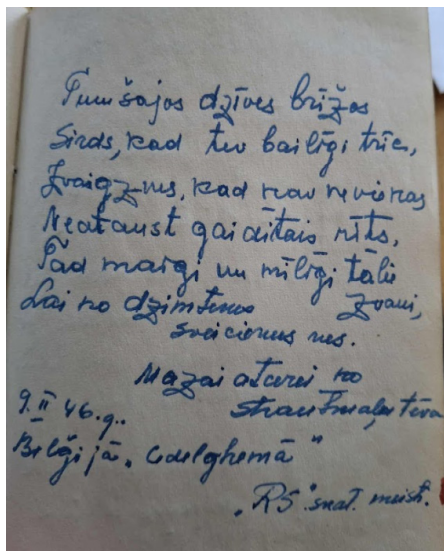 Tumšajos dzīves brīžos
Sirds, kad tev bailīgi trīc,
Zvaigznes, kad nav nevienas
Neataust gaidītais rīts,
Tad maigi un mīlīgi tālie
Lai no dzimtenes zvani,
sveicienus nes.
Mazai atmiņai no
9.II 46.g.
Beļģijā „Cedelghemā"
„R5"